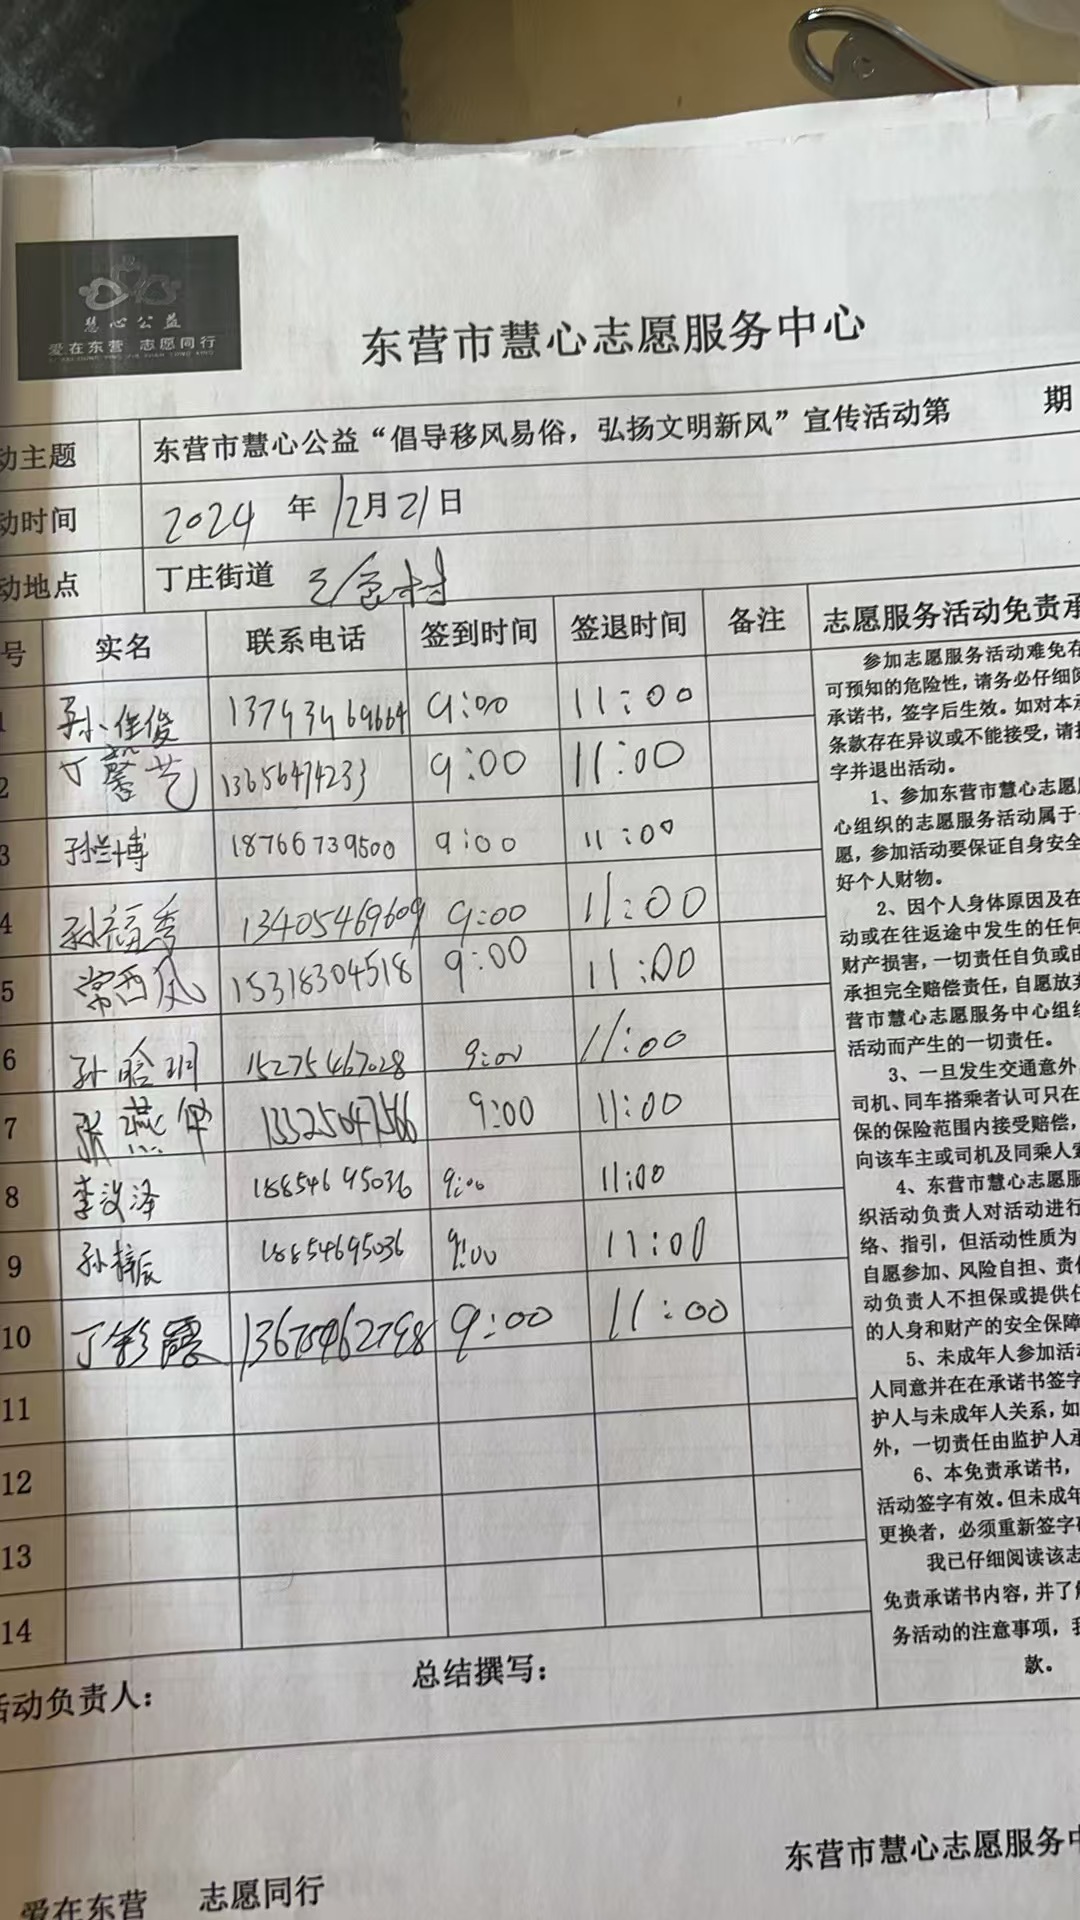 慧心公益
爱在东营 志愿同行
东营市慧心志愿服务中心
动主题 东营市慧心公益“倡导移风易俗，弘扬文明新风”宣传活动第 期
动时间 2024 年 12月21日
动地点 丁庄街道 村
号 实名 联系电话 签到时间 签退时间 备注 志愿服务活动免责承
1 孙佳俊 13793969664 9:00 11:00
2 丁馨艺 13656474233 9:00 11:00
3 孙 博 18766739500 9:00 11:00
4 孙福秀 13405469609 9:00 11:00
5 常西风 15318304518 9:00 11:00
6 孙晗玥 15275467028 9:00 11:00
7 张燕 9:00 11:00
8 李汶泽 18854695036 9:00 11:00
9 孙梓辰 18854695036 9:00 11:00
10 丁彩霞 9:00 11:00
11
12
13
14
参加志愿服务活动难免存
可预知的危险性，请务必仔细阅
承诺书，签字后生效。如对本承
条款存在异议或不能接受，请拒
字并退出活动。
1、参加东营市慧心志愿服
心组织的志愿服务活动属于
愿，参加活动要保证自身安全
好个人财物。
2、因个人身体原因及在
动或在往返途中发生的任何
财产损害，一切责任自负或由
承担完全赔偿责任，自愿放弃
营市慧心志愿服务中心组织
活动而产生的一切责任。
3、一旦发生交通意外
司机、同车搭乘者认可只在
保的保险范围内接受赔偿，
向该车主或司机及同乘人索
4、东营市慧心志愿服
织活动负责人对活动进行
络、指引，但活动性质为
自愿参加、风险自担、责任
动负责人不担保或提供任
的人身和财产的安全保障
5、未成年人参加活动
人同意并在在承诺书签字
护人与未成年人关系，如
外，一切责任由监护人承
6、本免责承诺书，
活动签字有效。但未成年
更换者，必须重新签字确
我已仔细阅读该志
免责承诺书内容，并了解
务活动的注意事项，我
款。
活动负责人： 总结撰写：
东营市慧心志愿服务中
爱在东营 志愿同行